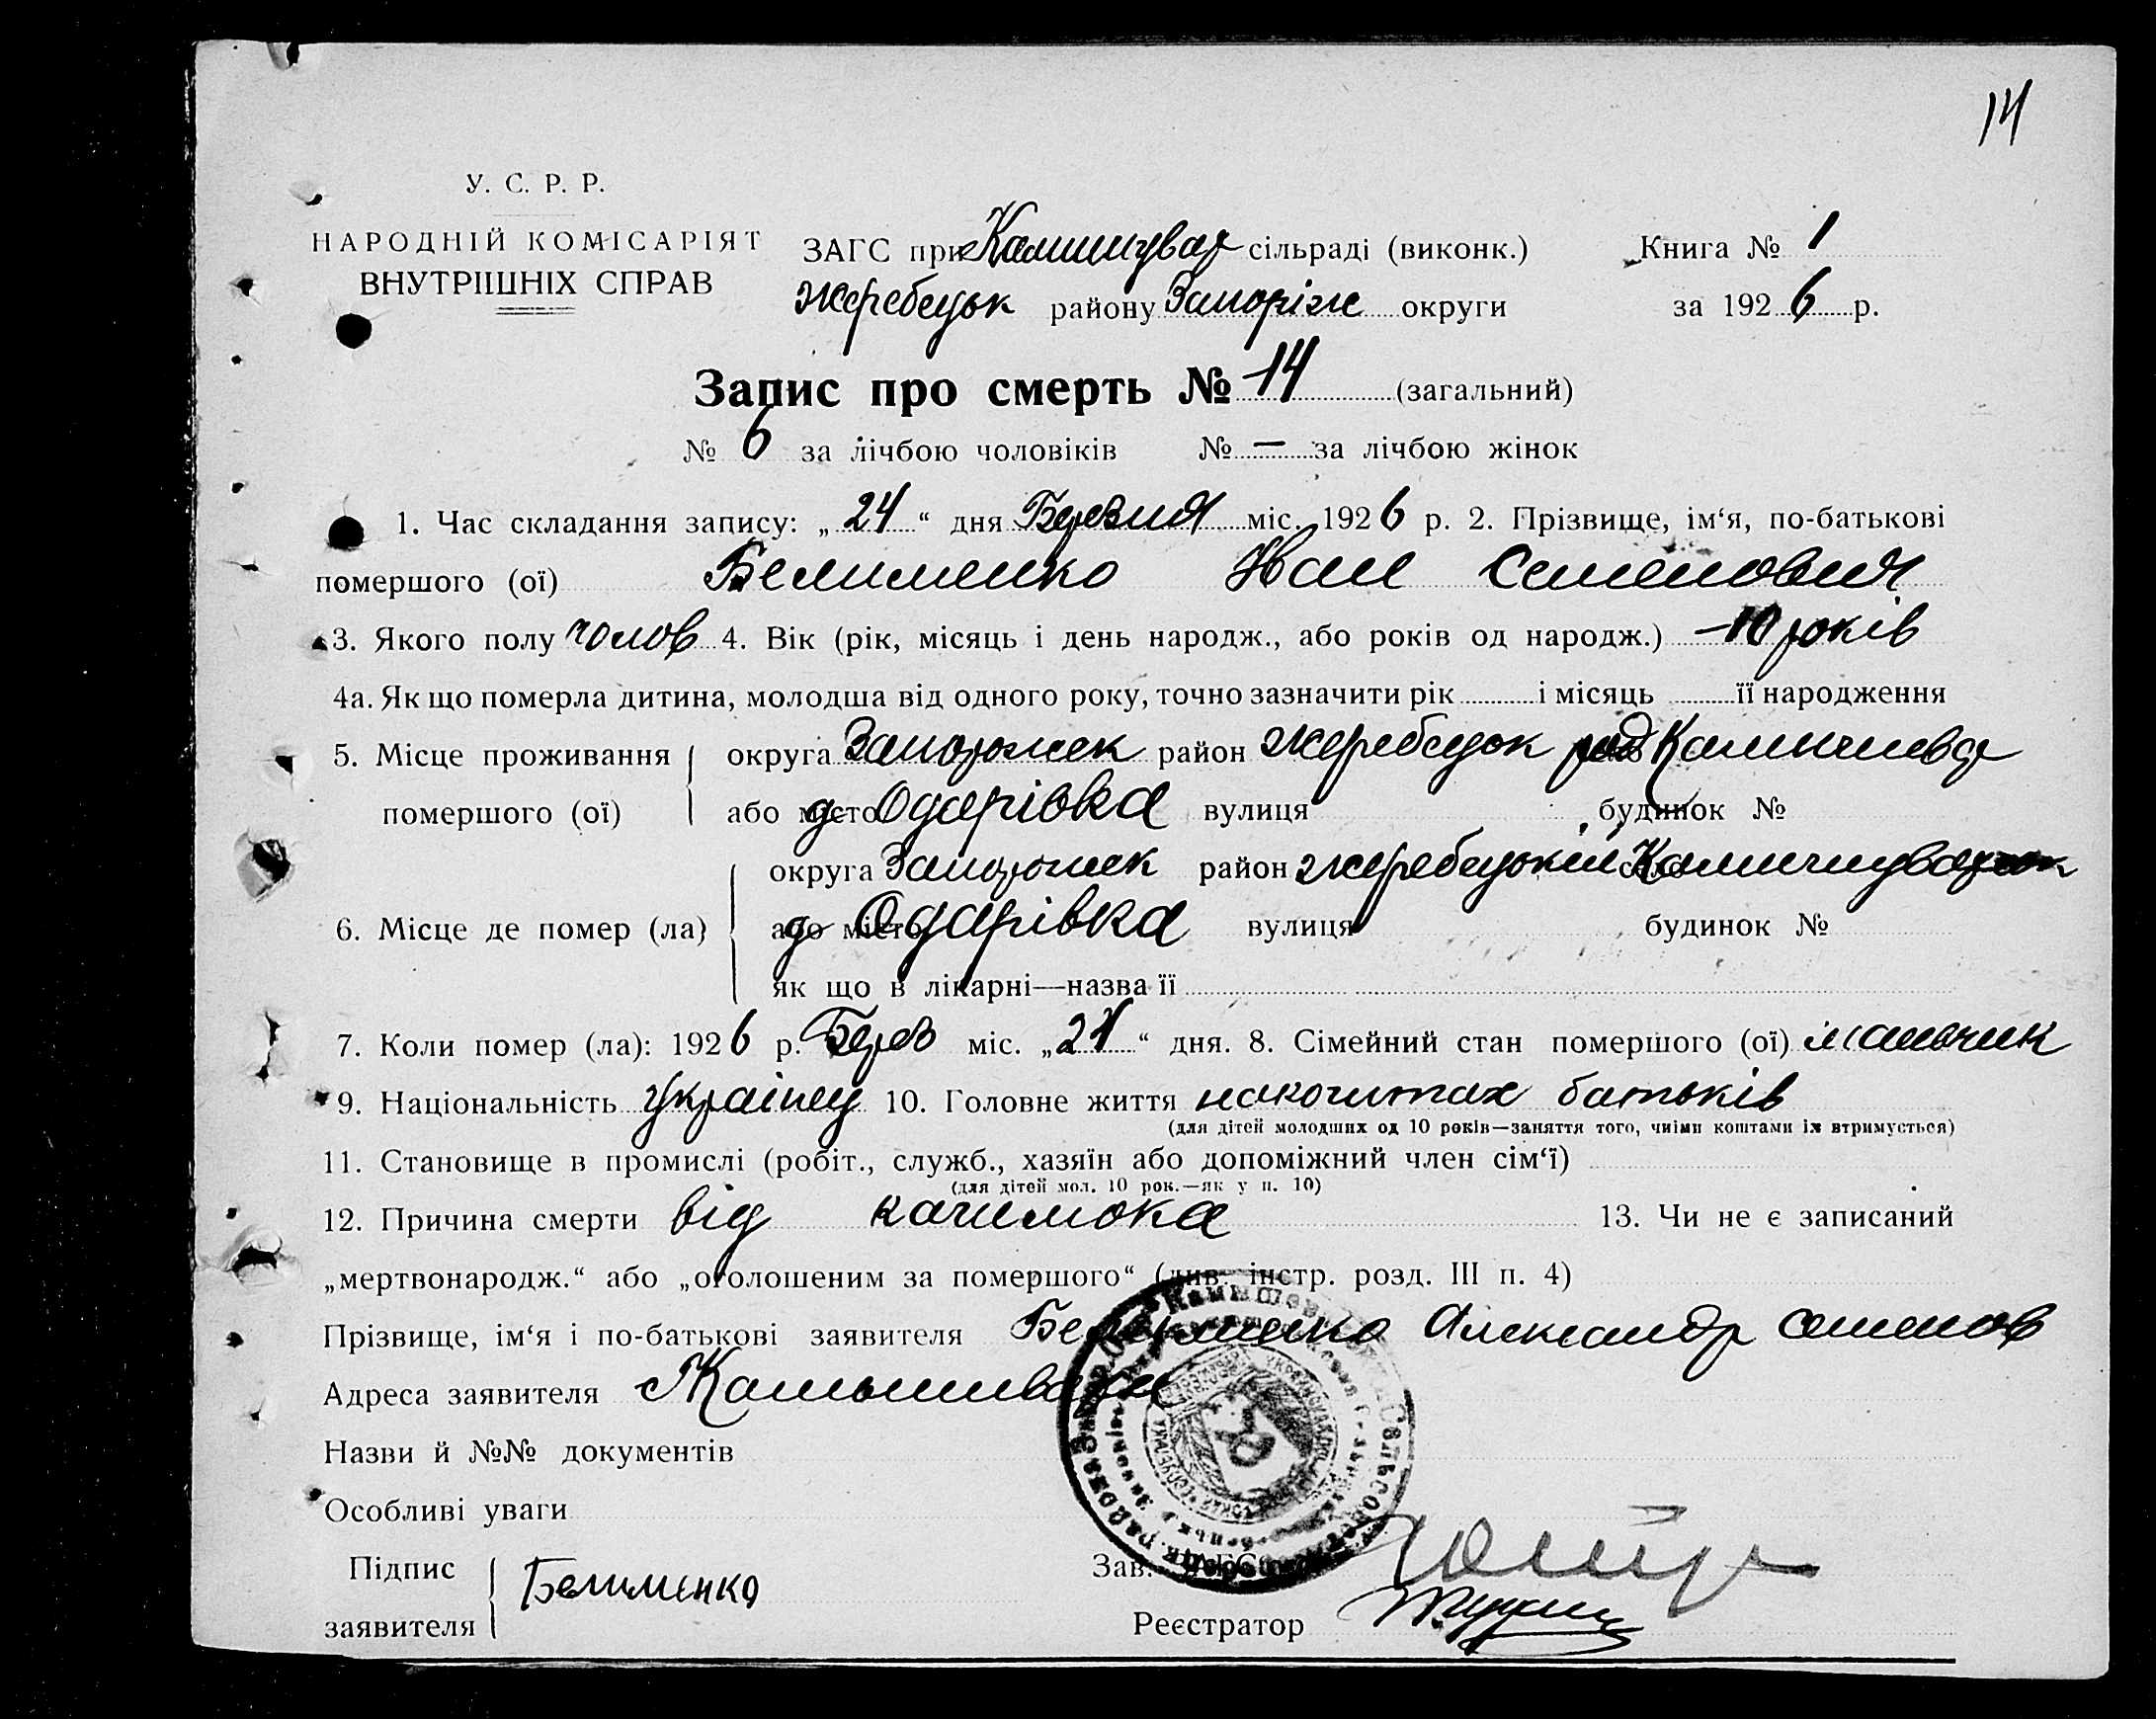 14
У. С. Р. Р.
НАРОДНІЙ КОМІСАРІЯТ
ВНУТРІШНІХ СПРАВ
ЗАГС при Камишувах сільраді (виконк.) Книга № 1
Жеребецьк району Запоріж округи за 1926 р.
Запис про смерть № 14 (загальний)
№ 6 за лічбою чоловіків № — за лічбою жінок
1. Час складання запису: „24“ дня Березня міс. 1926 р. 2. Прізвище, ім‘я, по-батькові
помершого (ої) Белименко Иван Семенович
3. Якого полу чолов 4. Вік (рік, місяць і день народж., або років од народж.) — 10 років
4а. Як що померла дитина, молодша від одного року, точно зазначити рік і місяць її народження
5. Місце проживання округа Запорожск район Жеребецьк рад
помершого (ої) або місто д Одарівка вулиця будинок №
округа Запорожск район Жеребецький село
6. Місце де помер (ла) або місто д Одарівка вулиця будинок №
як що в лікарні—назва її
7. Коли помер (ла): 1926 р. Берез міс. „21“ дня. 8. Сімейний стан помершого (ої) мальчик
9. Національність Українец 10. Головне життя на коштах батьків
(для дітей молодших од 10 років—заняття того, чиїми коштами їх втримується)
11. Становище в промислі (робіт., служб., хазяїн або допоміжний член сім‘ї)
(для дітей мол. 10 рок.—як у п. 10)
12. Причина смерти від 13. Чи не є записаний
„мертвонародж.“ або „оголошеним за помершого“ (див. інстр. розд. III п. 4)
Прізвище, ім‘я і по-батькові заявителя Белименко Александр Семенов
Адреса заявителя Камышеваха
Назви й №№ документів
Особливі уваги
Підпис Белименко Зав. ЗАГСом
заявителя Реєстратор